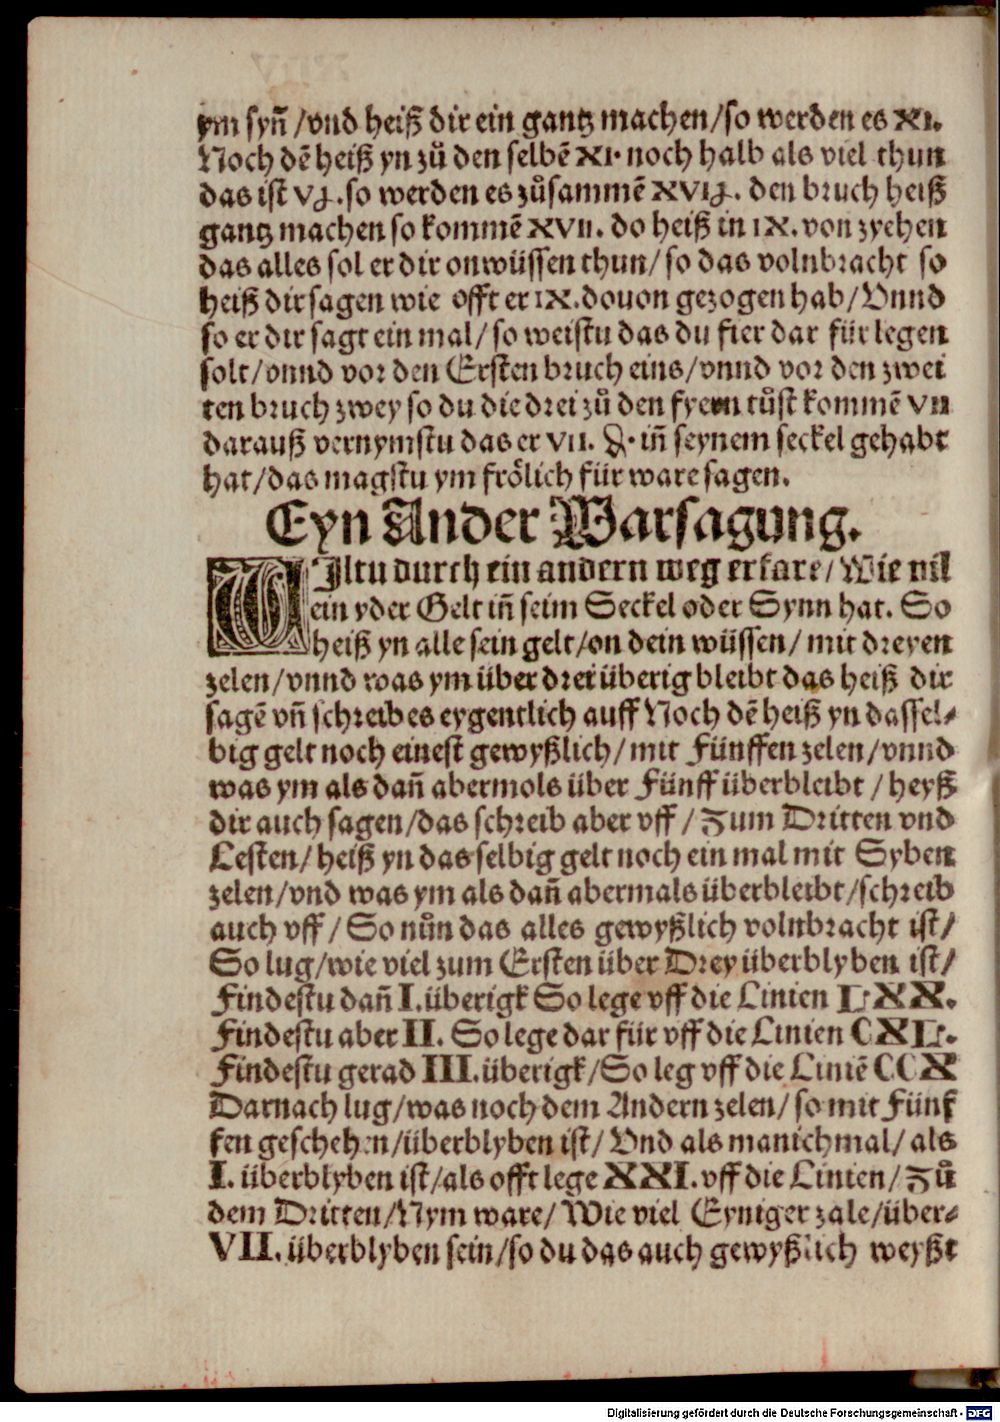 ym syn̄ /vnd heiß dir ein gantz machen/so werden es XI.
Noch dē heiß yn zů den selbē XI· noch halb als viel thun
das ist . so werden es zůsammē . den bruch heiß
gantz machen so kommē XVII. do heiß in IX. von zyehen
das alles sol er dir onwüssen thun/ so das volnbracht so
heiß dir sagen wie offt er IX. douon gezogen hab/ Vnnd
so er dir sagt ein mal/ so weistu das du fier dar für legen
solt/vnnd vor den Ersten bruch eins/vnnd vor den zwei
ten bruch zwey so du die drei zů den fyern tůst kommē VII
darauß vernymstu das er VII. ₰· in̄ seynem seckel gehabt
hat/das magstu ym frőlich für ware sagen.
Eyn Ander Warsagung.
WIltu durch ein andern weg erfare/ Wie vil
ein yder Gelt in̄ seim Seckel oder Synn hat. So
heiß yn alle sein gelt/on dein wüssen/ mit dreyen
zelen/vnnd was ym über drei überig bleibt das heiß dir
sagē vn̄ schreib es eygentlich auff Noch dē heiß yn dassel⸗
big gelt noch einest gewyßlich/ mit Fünffen zelen/vnnd
was ym als dan̄ abermols über Fünff überbleibt /heyß
dir auch sagen/das schreib aber vff / Zum Dritten vnd
Lesten/ heiß yn das selbig gelt noch ein mal mit Syben
zelen/vnd was ym als dan̄ abermals überbleibt/schreib
auch vff / So nůn das alles gewyßlich volnbracht ist/
So lug/wie viel zum Ersten über Drey überblyben ist/
Findestu dan̄ I. überigk So lege vff die Linien LXX.
Findestu aber II. So lege dar für vff die Linien CXL.
Findestu gerad III. überigk/So leg vff die Liniē CCX
Darnach lug/was noch dem Andern zelen/ so mit Fünf
fen geschehen/überblyben ist/ Vnd als manichmal/ als
I. überblyben ist/als offt lege XXI. vff die Linien/ Zů
dem Dritten/Nym ware/ Wie viel Eyniger zale/über⸗
VII. überblyben sein/so du das auch gewyßlich weyßt
Digitalisierung gefördert durch die Deutsche Forschungsgemeinschaft - DFG